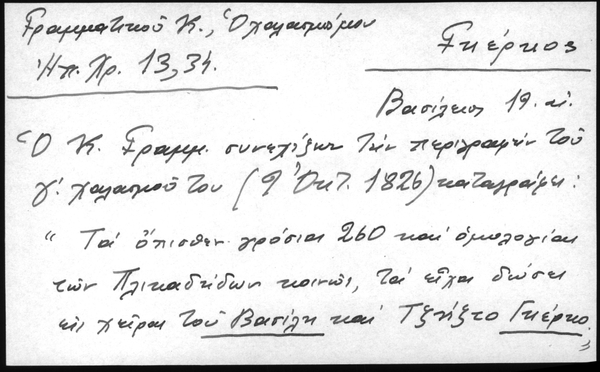 Γραμματικοῦ Κ., Ὁ χαλασμὸς μου
Ἠπ. Χρ. 13, 34.
Γκέρκος
Βασίλειος 19. αἰ.
Ὁ Κ. Γραμμ. συνεχίζων τὴν περιγραφὴν τοῦ
γ΄. χαλασμοῦ του (9 Ὀκτ. 1826) καταγράφει:
" Τὰ ὄπισθεν γρόσια 260 καὶ ὁμολογίαν
τῶν Πλικαδιδων κοινῶς, τὰ εἶχα δώσει
εἰς χεῖρας τοῦ Βασίλη καὶ Τζήτζο Γκέρκο "